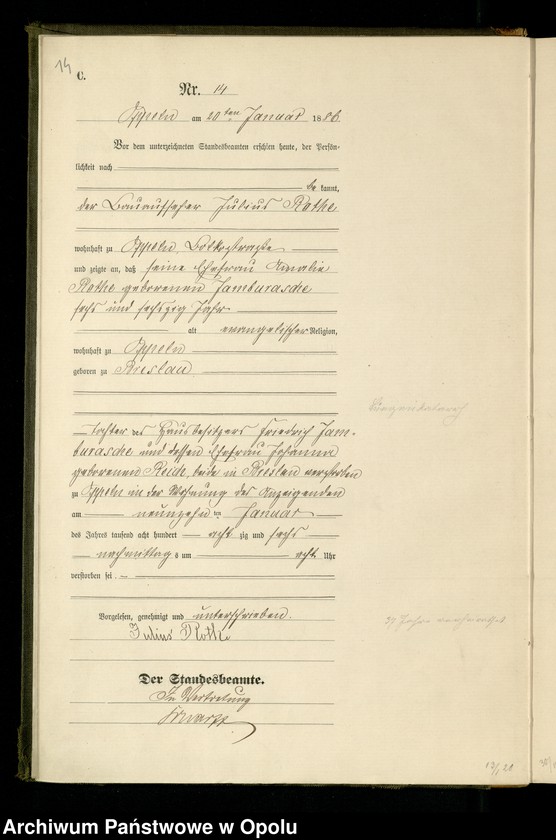 14
C.
Nr. 14
Oppeln am 20ten Januar 1886.
Vor dem unterzeichneten Standesbeamten erschien heute, der Persön-
lichkeit nach
be kannt,
der Bauaufseher Julius Rothe
wohnhaft zu Oppeln Bolkostraße
und zeigte an, daß seine Ehefrau Amalie
Rothe geborenen Jamburasche
sechs und sechszig Jahr
alt evangelischer Religion,
wohnhaft zu Oppeln
geboren zu Breslau
Tochter des Hausbesitzers Friedrich Jam-
burasche und dessen Ehefrau Johanna
geborenen Reich, beide in Breslau verstorben
zu Oppeln in der Wohnung des Anzeigenden
am neunzehnten Januar
des Jahres tausend acht hundert acht zig und sechs
nachmittags um acht Uhr
verstorben sei.
Vorgelesen, genehmigt und unterschrieben.
Julius Rothe
Der Standesbeamte.
In Vertretung
37 Jahre verheirathet
Archiwum Państwowe w Opolu